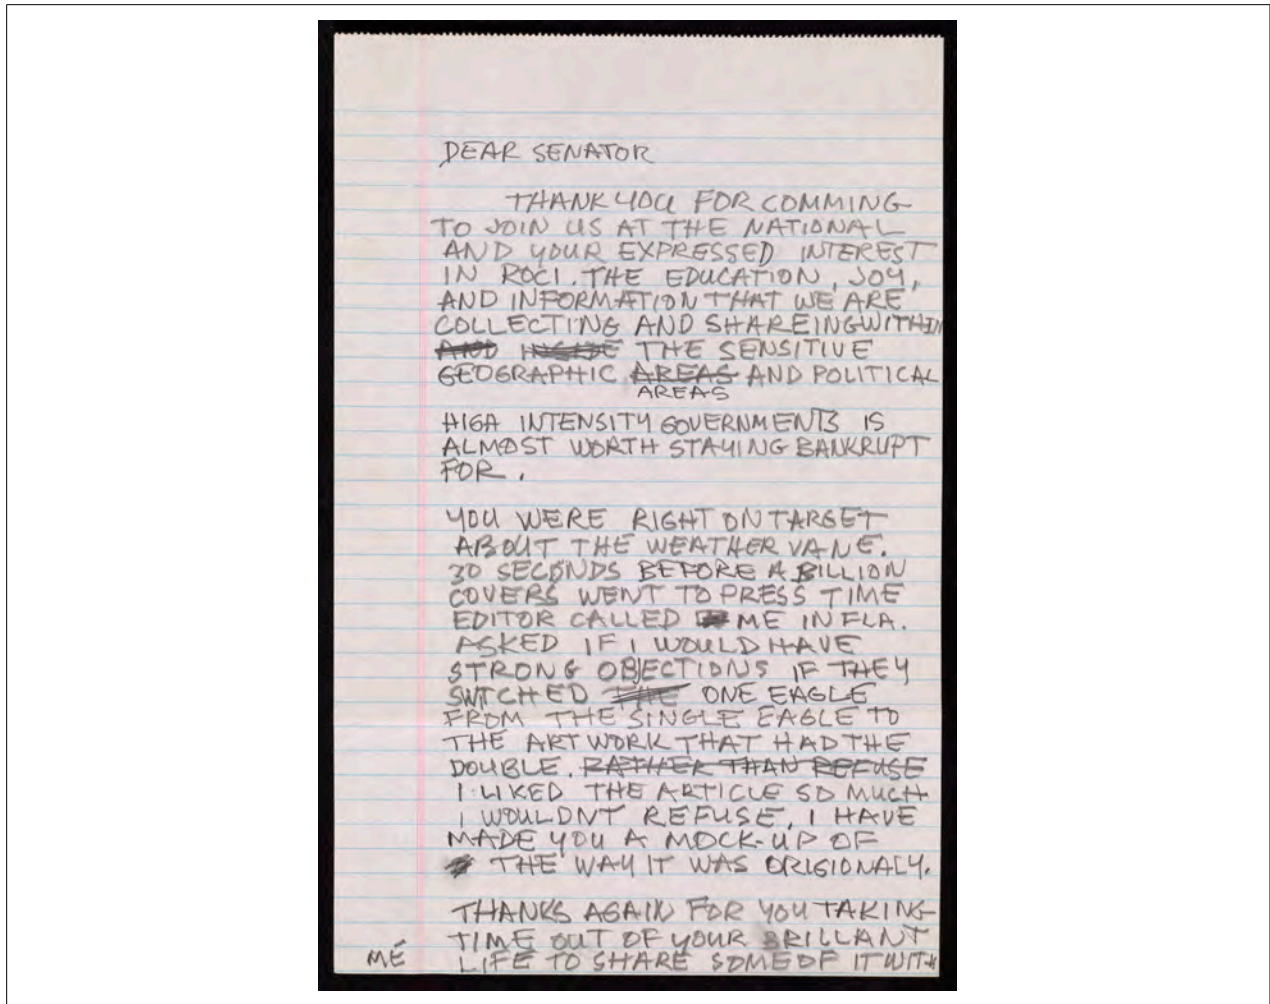 DEAR SENATOR
THANK YOU FOR COMMING
TO JOIN US AT THE NATIONAL
AND YOUR EXPRESSED INTEREST
IN ROCI. THE EDUCATION, JOY,
AND INFORMATION THAT WE ARE
COLLECTING AND SHAREING WITHIN
AND INSIDE THE SENSITIVE
GEOGRAPHIC AREAS AND POLITICAL
AREAS
HIGH INTENSITY GOVERNMENTS IS
ALMOST WORTH STAYING BANKRUPT
FOR.
YOU WERE RIGHT ON TARGET
ABOUT THE WEATHER VANE.
30 SECONDS BEFORE A BILLION
COVERS WENT TO PRESS TIME
EDITOR CALLED ME IN FLA.
ASKED IF I WOULD HAVE
STRONG OBJECTIONS IF THEY
SWITCHED THE ONE EAGLE
FROM THE SINGLE EAGLE TO
THE ART WORK THAT HAD THE
DOUBLE. RATHER THAN REFUSE
I LIKED THE ARTICLE SO MUCH
I WOULDNT REFUSE. I HAVE
MADE YOU A MOCK-UP OF
THE WAY IT WAS ORIGIONALY.
THANKS AGAIN FOR YOU TAKING
TIME OUT OF YOUR BRILLANT
LIFE TO SHARE SOME OF IT WITH
ME